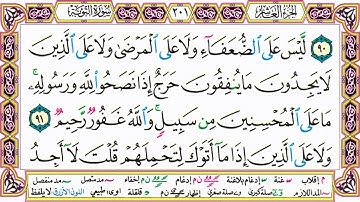 الجزء العاشر ٢٠١ سورة التوبة
٩٠ لَيْسَ عَلَى الضُّعَفَآءِ وَلَا عَلَى الْمَرْضٰى وَلَا عَلَى الَّذِيْنَ
لَا يَجِدُوْنَ مَا يُنْفِقُوْنَ حَرَجٌ اِذَا نَصَحُوْا لِلّٰهِ وَرَسُوْلِهٖ ؕ
مَا عَلَى الْمُحْسِنِيْنَ مِنْ سَبِيْلٍ ؕ وَاللّٰهُ غَفُوْرٌ رَّحِيْمٌ ٩١
وَلَا عَلَى الَّذِيْنَ اِذَا مَاۤ اَتَوْكَ لِتَحْمِلَهُمْ قُلْتَ لَاۤ اَجِدُ